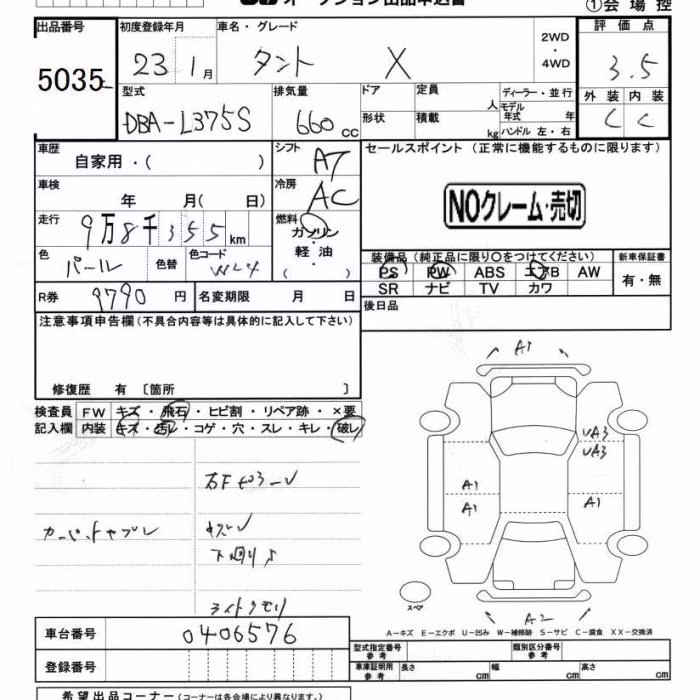 オークション出品申込書
①会場控
出品番号
5035
初度登録年月
23 1月
車名・グレード
タント X
2WD
・
4WD
評価点
3.5
型式
DBA-L375S
排気量
660 cc
ドア
定員
人
形状
積載
kg
ディーラー・並行
モデル年式 年
ハンドル 左・右
外装 内装
C C
車歴
自家用・( )
シフト
AT
車検
年 月( 日)
冷房
AC
走行
9万8千355km
燃料
ガソリン
・
軽油
( )
色
パール
色替
色コード
R券
9790円
名変期限 月 日
セールスポイント(正常に機能するものに限ります)
NOクレーム・売切
装備品(純正品に限り○をつけてください)
PS PW ABS エアB AW
SR ナビ TV カワ
新車保証書
有・無
後日品
注意事項申告欄(不具合内容等は具体的に記入して下さい)
修復歴 有 〔箇所 〕
検査員記入欄
FW キズ・飛石・ヒビ割・リペア跡・×要
内装 キズ・汚レ・コゲ・穴・スレ・キレ・破レ
カーペットヤブレ
下回りサ
ライトクモリ
A1
UA3
UA3
A1
A1
A1
スペア
A2
A－キズ E－エクボ U－凹み W－補修跡 S－サビ C－腐食 XX－交換済
車台番号
0406576
登録番号
型式指定番号
参考
類別区分番号
参考
車庫証明用
参考
長さ cm
幅 cm
高さ cm
希望出品コーナー(コーナーは各会場により異なります。)